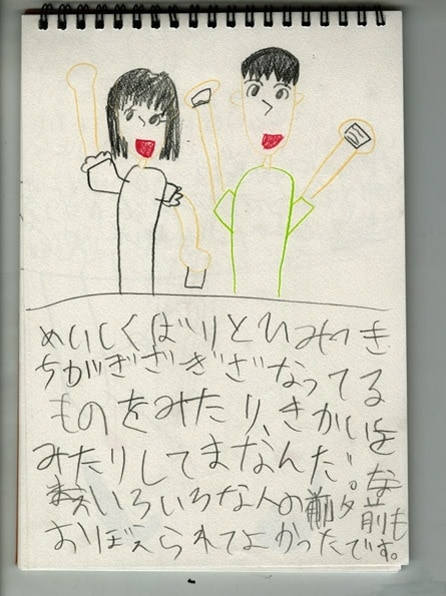 めいしくばりとひみつき
ちがぎざぎざなってる
ものをみたり、きかいを
みたりしてまなんだ。
いろいろな人の な前も
おぼえられてよかったです。